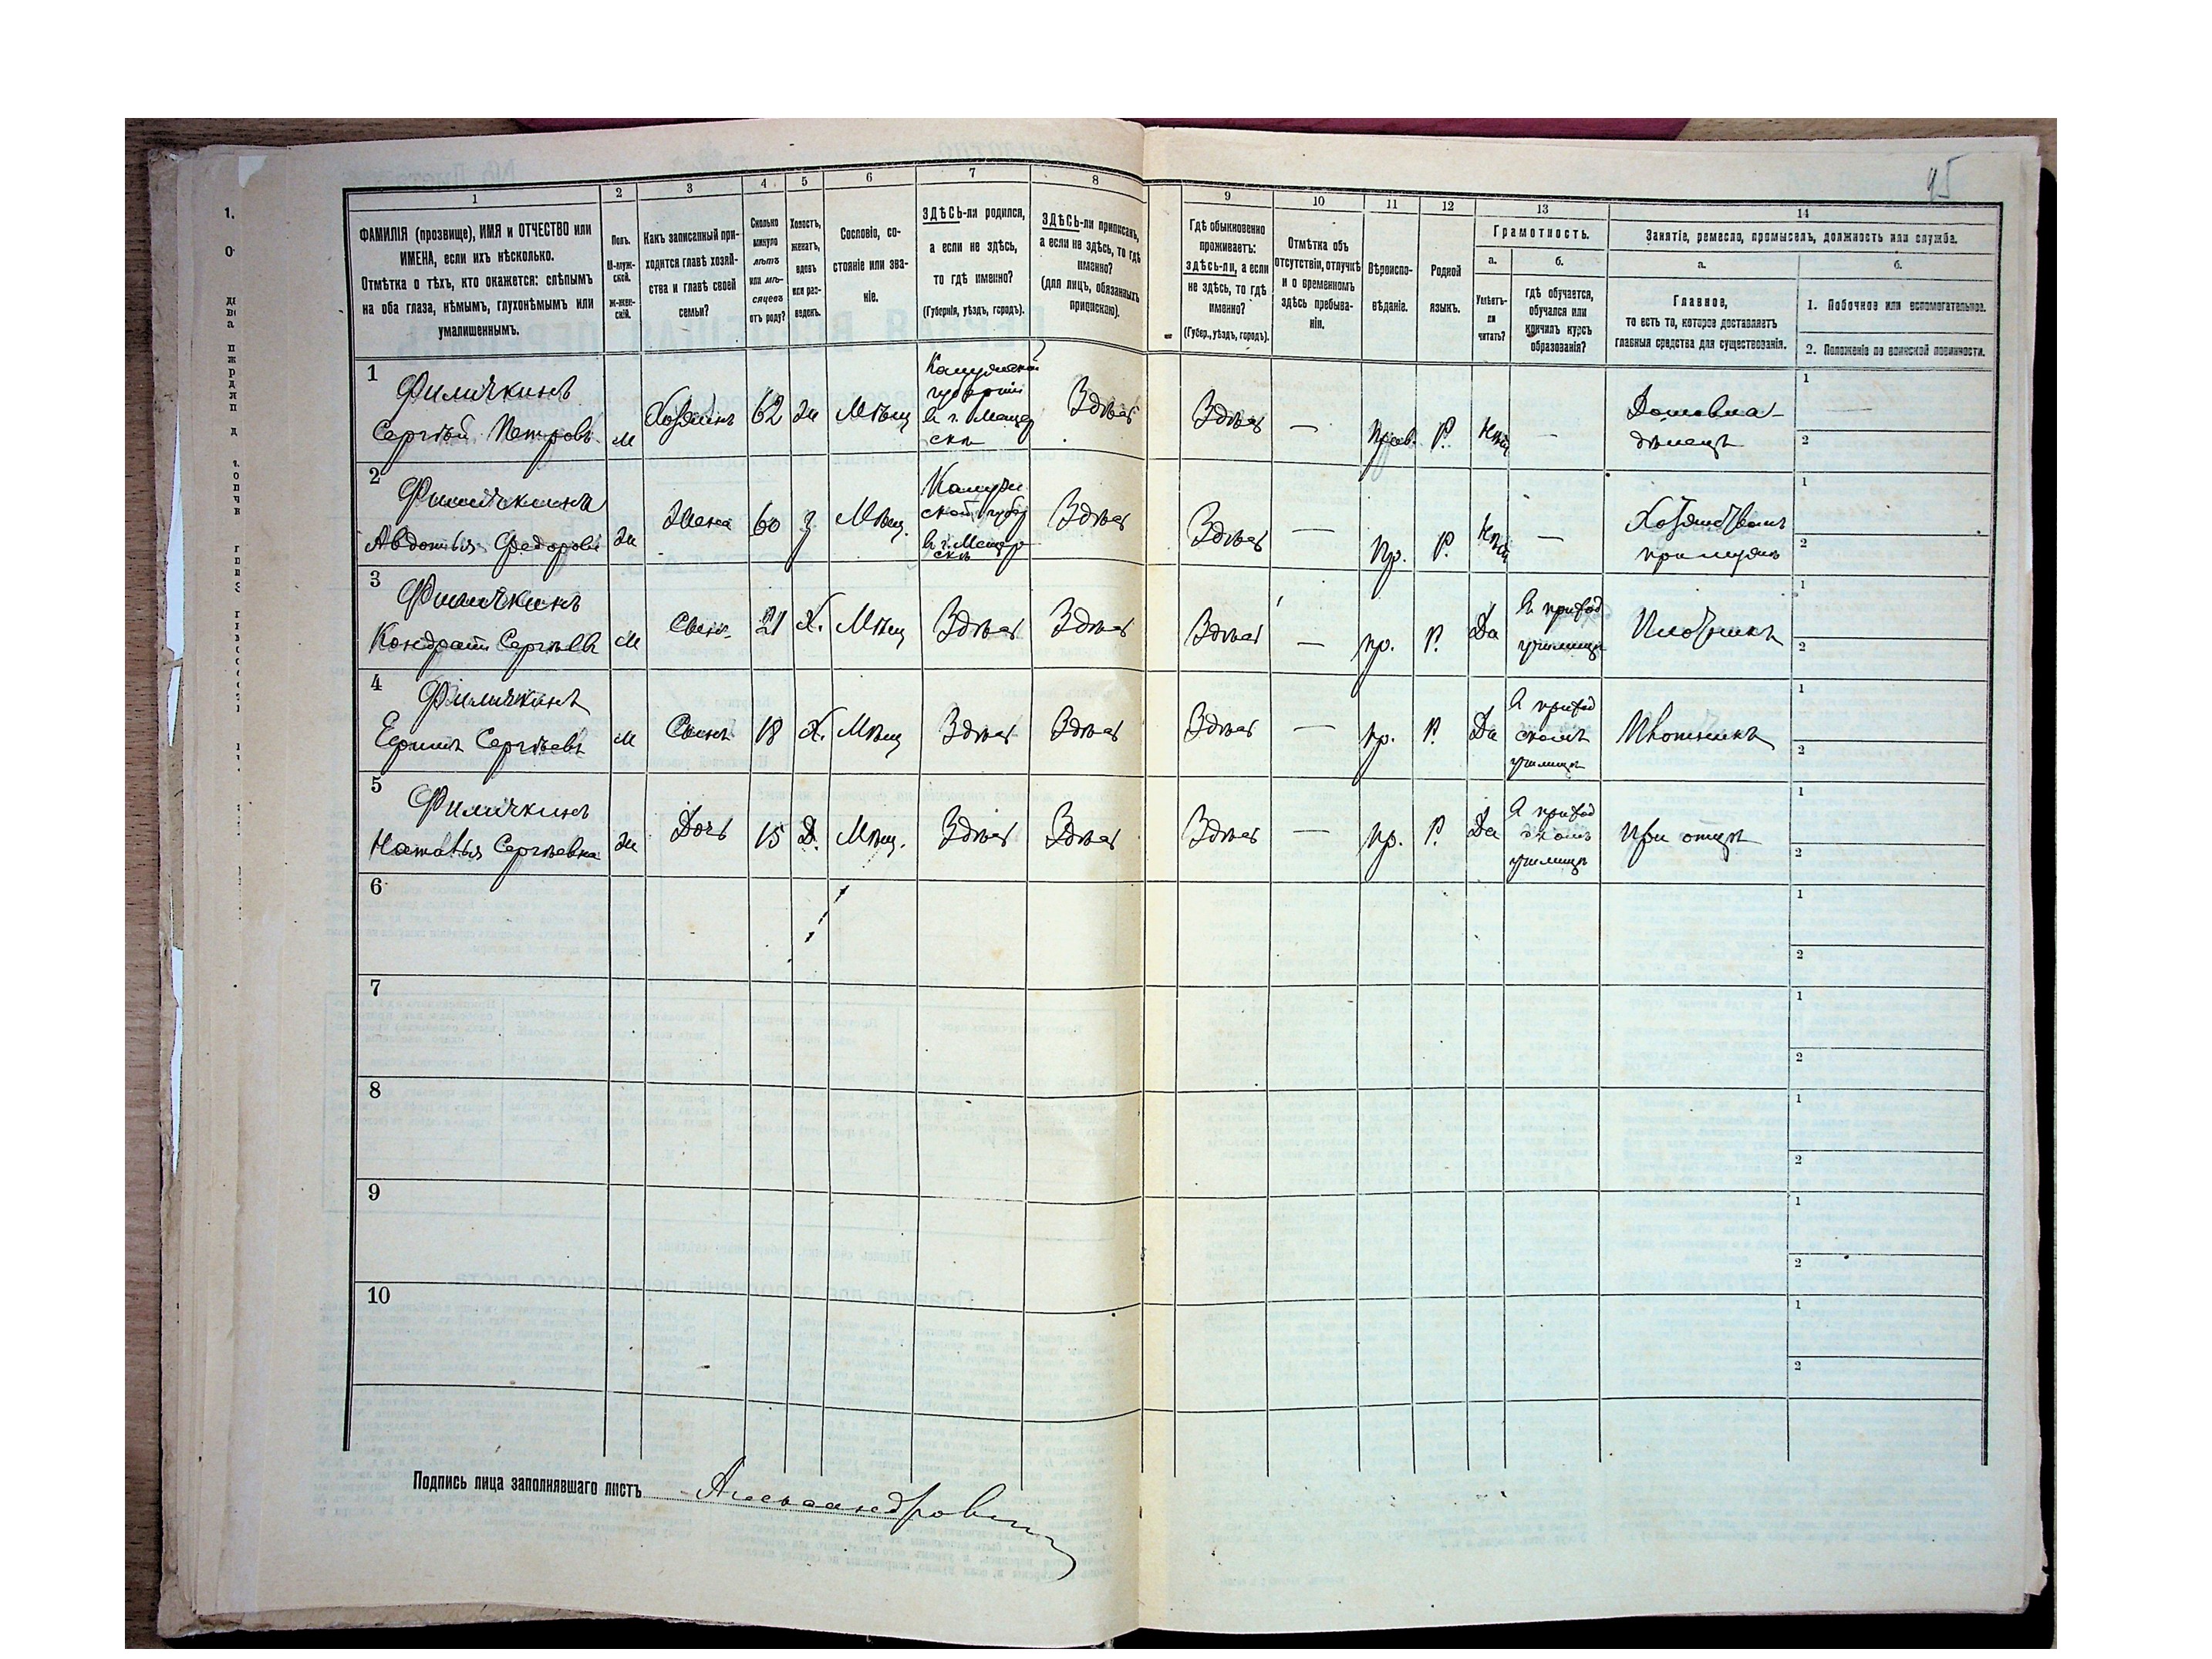 45
1 2 3 4 5 6 7 8 9 10 11 12 13 14
ФАМИЛІЯ (прозвище), ИМЯ и ОТЧЕСТВО или
ИМЕНА, если ихъ нѣсколько.
Отмѣтка о тѣхъ, кто окажется: слѣпымъ
на оба глаза, нѣмымъ, глухонѣмымъ или
умалишеннымъ.
Полъ.
М-муж-
ской.
Ж-жен-
скій.
Какъ записанный при-
ходится главѣ хозяй-
ства и главѣ своей
семьи?
Сколько
минуло
лѣтъ
или мѣ-
сяцевъ
отъ роду?
Холостъ,
женатъ,
вдовъ
или раз-
веденъ.
Сословіе, со-
стояніе или зва-
ніе.
ЗДѢСЬ-ли родился,
а если не здѣсь,
то гдѣ именно?
(Губернія, уѣздъ, городъ).
ЗДѢСЬ-ли приписанъ,
а если не здѣсь, то гдѣ
именно?
(для лицъ, обязанныхъ
припискою).
Гдѣ обыкновенно
проживаетъ:
здѣсь-ли, а если
не здѣсь, то гдѣ
именно?
(Губер., уѣздъ, городъ).
Отмѣтка объ
отсутствіи, отлучкѣ
и о временномъ
здѣсь пребыва-
ніи.
Вѣроиспо-
вѣданіе.
Родной
языкъ.
Грамотность.
а.
Умѣетъ-
ли
читать?
б.
гдѣ обучается,
обучался или
кончилъ курсъ
образованія?
Занятіе, ремесло, промыселъ, должность или служба.
а.
Главное,
то есть то, которое доставляетъ
главныя средства для существованія.
б.
1. Побочное или вспомогательное.
2. Положеніе по воинской повинности.
1
Филичкинъ
Сергѣй Петровъ
м
Хозяинъ
62
ж
Мѣщ
Калужской
губерніи
въ г. Мещов
скѣ
Здѣсь
Здѣсь
—
Прав.
Р.
Нѣтъ
—
Домовла-
дѣлецъ
1
2
2
Филичкина
Авдотья Федорова
ж
Жена
60
з
Мѣщ.
Калуж
ской губер
въ г. Мещов
скѣ
Здѣсь
Здѣсь
—
пр.
Р.
Нѣтъ
—
Хозяйство
при мужѣ
1
2
3
Филичкинъ
Кондратъ Сергѣевъ
м
Сынъ
21
Х.
Мѣщ
Здѣсь
Здѣсь
Здѣсь
—
пр.
Р.
Да
В приход
училищѣ
Плотникъ
1
2
4
Филичкинъ
Сергѣевъ
м
Сынъ
18
Х.
Мѣщ
Здѣсь
Здѣсь
Здѣсь
—
пр.
Р.
Да
В приход
скомъ
училищѣ
Плотникъ
1
2
5
Филичкинъ
Наталья Сергѣевна
ж
Дочь
15
Д.
Мѣщ.
Здѣсь
Здѣсь
Здѣсь
—
пр.
Р.
Да
В приход
скомъ
училищѣ
При отцѣ
1
2
6
1
2
7
1
2
8
1
2
9
1
2
10
1
2
Подпись лица заполнявшаго листъ